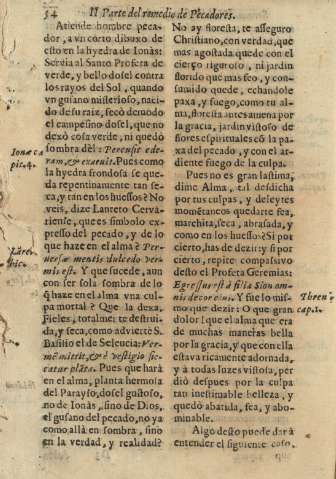 54 II Parte del remedio de Pecadores.
Atiende hombre peca-
dor, a vn corto dibuxo de
esto en la hyedra de Ionàs:
Seruia al Santo Profeta de
verde, y bello dosel contra
los rayos del Sol, quando
vn gusano misterioso, naci-
do de su raiz, secò demodo
el campesino dosel, que no
dexò cosa verde, ni quedò
sombra dèl: Percussit ede-
ram, & exaruit. Pues como
la hyedra frondosa se que-
da repentinamente tan se-
ca, y tan en los huessos? No
veis, dize Lanreto Cerva-
riense, que es simbolo ex-
presso del pecado, y de lo
que haze en el alma? Per-
uersæ mentis dulcedo ver-
mis est. Y que sucede, aun
con ser sola sombra de lo
q̃ haze en el alma vna cul-
pa mortal? Que la dexa,
Fieles, totalmēte destrui-
da, y seca, como advierte S.
Basilio el de Seleucia: Ver-
me
Pues que harà
en el alma, planta hermosa
del Parayso, dosel gustoso,
no de Ionàs, sino de Dios,
el gusano del pecado, no ya
como allà en sombra, sino
en la verdad, y realidad?
Ionæ ca
pit. 4.
Lauret
hic.
No ay floresta, te asseguro
Christiano, con verdad, que
mas agostada quede con el
cierço riguroso, ni jardin
florido que mas feo, y con-
sumido quede, echandole
paxa, y fuego, como tu al-
ma, floresta antes amena por
la gracia, jardin vistoso de
flores espirituales cõ la pa-
xa del pecado, y con el ar-
diente fuego de la culpa.
Pues no es gran lastima,
dime Alma, tal desdicha
por tus culpas, y deleytes
momẽtaneos quedarte fea,
marchita, seca, abrasada, y
como en los huessos? Si por
cierto, has de dezir; y si por
cierto, repite compassivo
desto el Profeta Geremias:
Egressus est à filia Sion om-
nis decor eius. Y fue lo mis-
mo que dezir: O que gran
dolor! que el alma que era
de muchas maneras bella
por la gracia, y que con ella
estava ricamente adornada,
y à todas luzes vistosa, per-
diò despues por la culpa
tan inestimable belleza, y
quedò abatida, fea, y abo-
minable.
Algo desto puede darà
entender el siguiente caso.
Thren.
cap. 1.